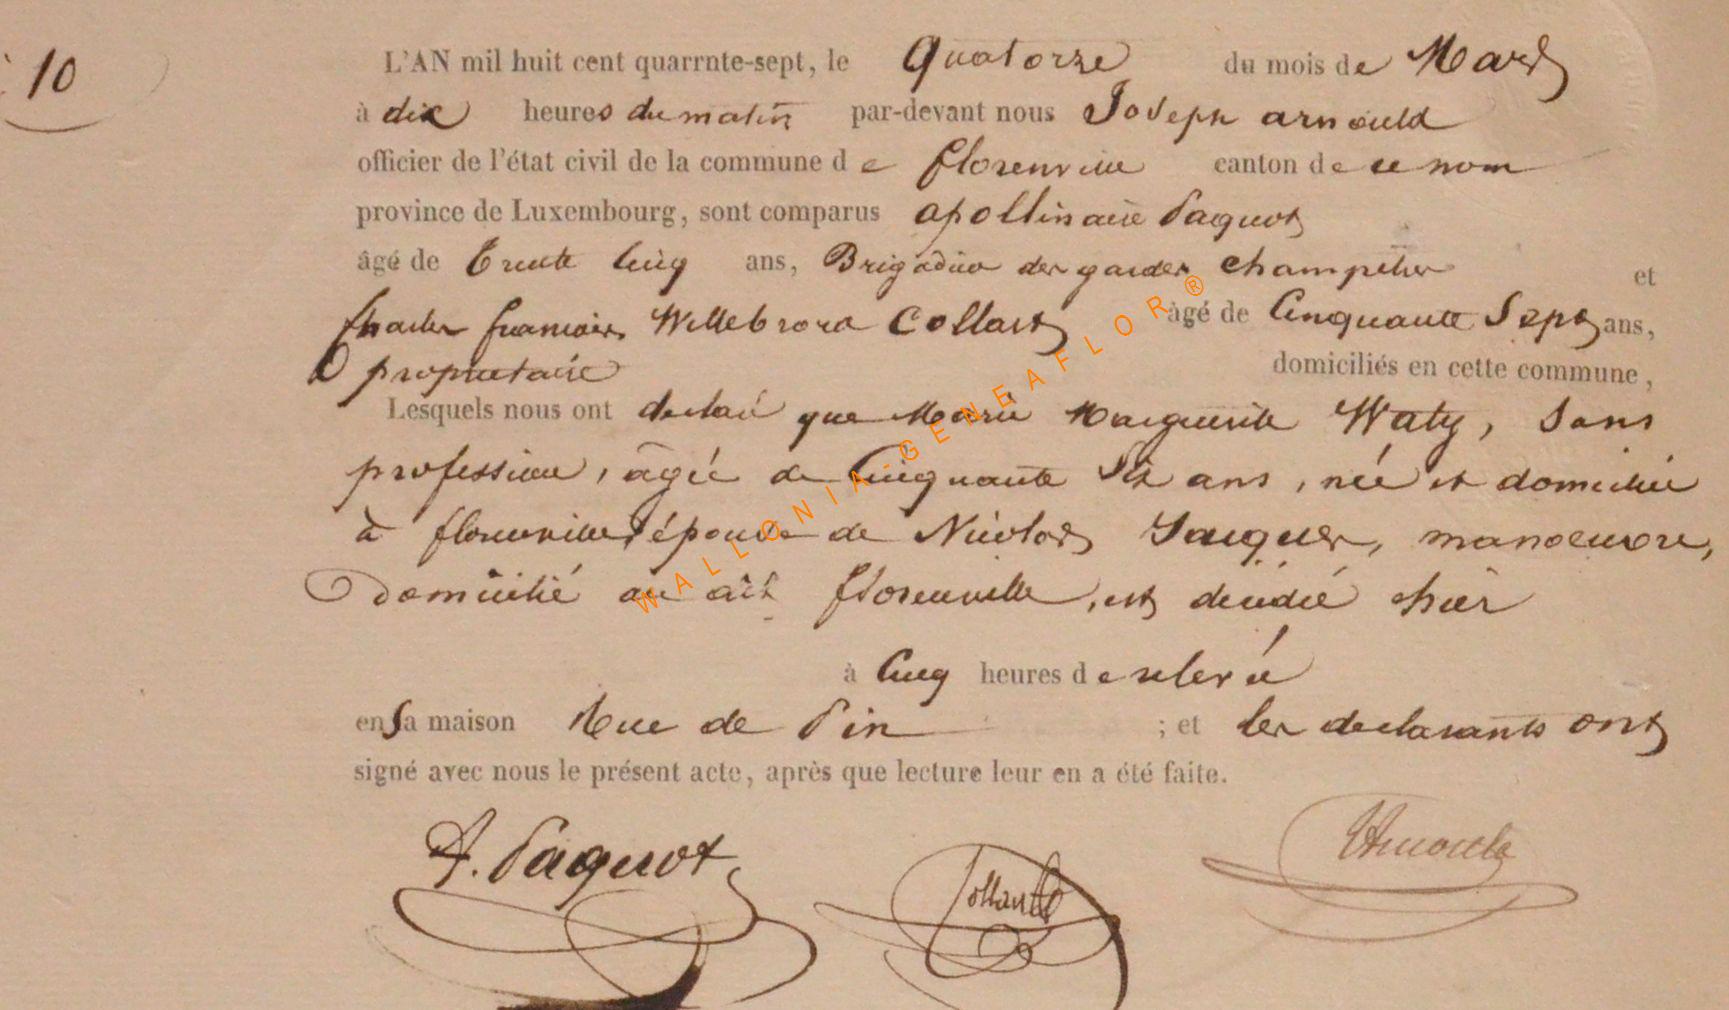 10
L'AN mil huit cent quarrnte-sept, le Quatorze du mois de Mars
à dix heures du matin par-devant nous Joseph arnould
officier de l'état civil de la commune de florenville canton de ce nom
province de Luxembourg, sont comparus apollinaire Paquot
âgé de Trente Cinq ans, Brigadier des gardes champêtres et
Charles francois Willebrord Collart âgé de Cinquante Sept ans,
propriétaire domiciliés en cette commune,
Lesquels nous ont déclaré que Marie Marguerite Waty, Sans
profession, âgée de Cinquante Six ans, née et domiciliée
à florenville, épouse de Nicolas Jacques, manoeuvre,
Domicilié au dit florenville, est décédée hier
à Cinq heures de relevée
en sa maison Rue de Pin ; et les declarants ont
signé avec nous le présent acte, après que lecture leur en a été faite.
A. Paquot Collart JArnould
WALLONIA-GENEAFLOR®